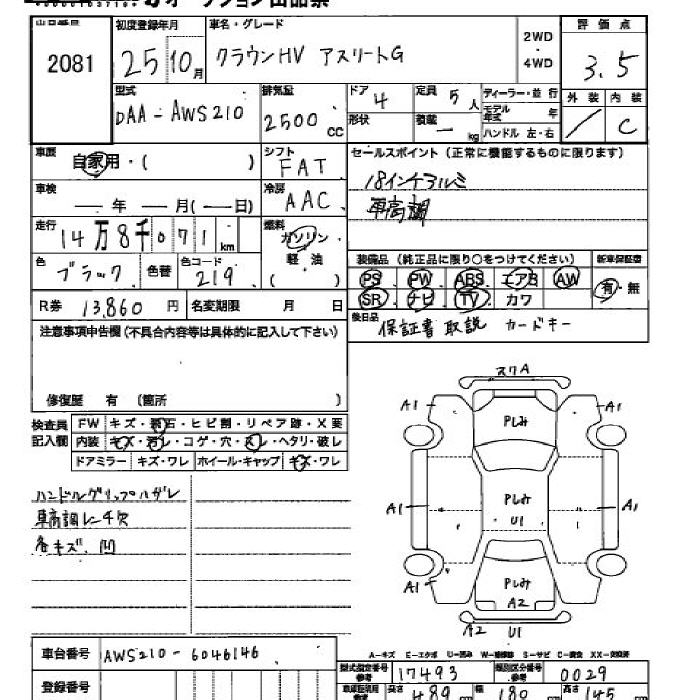 オークション出品票
出品番号 初度登録年月 車名・グレード 2WD・4WD 評価点
2081 25 10月 クラウンHV アスリートG 3.5
型式 排気量 ドア 4 定員 5人 ディーラー・並行 外装 内装
DAA-AWS210 2500cc 形状 積載 ー kg モデル年式 年 / C
ハンドル 左・右
車歴 自家用・( ) シフト FAT セールスポイント (正常に機能するものに限ります)
車検 ー年 ー月(ー日) 冷房 AAC 18インチアルミ
車高調
走行 14万8千071km 燃料 ガソリン・軽油 ( )
装備品 (純正品に限り○をつけてください) 新車保証書
色 ブラック 色替 色コード 219 PS PW ABS エアB AW 有・無
R券 13,860円 名変期限 月 日 SR ナビ TV カワ
後日品 保証書 取説 カードキー
注意事項申告欄(不具合内容等は具体的に記入して下さい)
修復歴 有 (箇所 )
検査員記入欄 FW キズ・飛石・ヒビ割・リペア跡・X要
内装 キズ・汚レ・コゲ・穴・スレ・ヘタリ・破レ
ドアミラー キズ・ワレ ホイール・キャップ キズ・ワレ
ハンドルグリップハガレ
車高調レンチ欠
各キズ、凹
スリA
A1 Pしみ A1
A1 Pしみ U1 A1
A1 Pしみ A2
A2 U1
A-キズ E-エクボ U-凹み W-補修跡 S-サビ C-腐食 XX-交換済
車台番号 AWS210-6046146
型式指定番号 参考 17493 類別区分番号 参考 0029
登録番号 車庫証明用 参考 長さ 489cm 幅 180cm 高さ 145